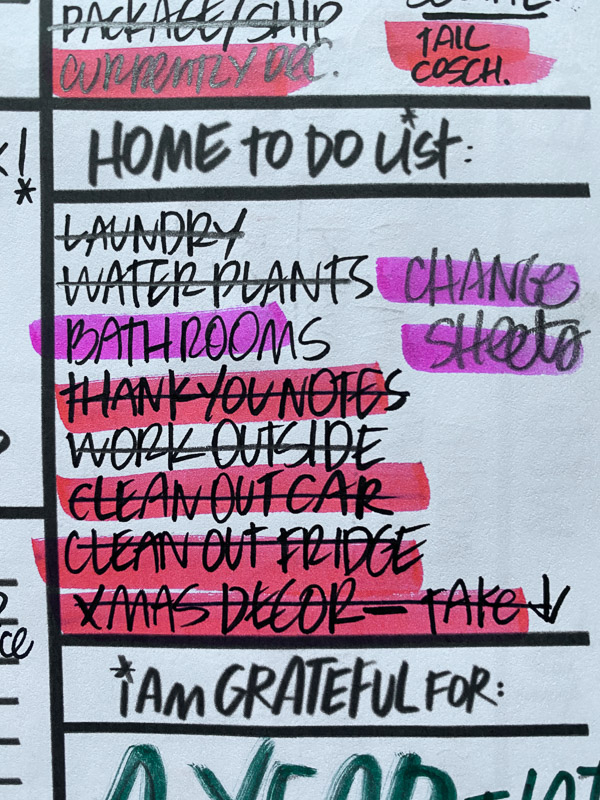 PACKAGE/SHIP
CURRENTLY DEC.
TAIL
COSCH.
HOME TO DO List:
LAUNDRY
WATER PLANTS
BATHROOMS
CHANGe
SHeets
THANK YOU NOTES
WORK OUTSIDE
CLEAN OUT CAR
CLEAN OUT FRIDGE
XMAS DECOR — TAKe ↓
*i Am GRATEFUL FOR:
A YEAR